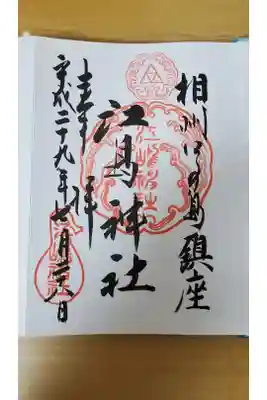 相州江の島鎮座
江島神社
奉拝
平成二十九年七月日